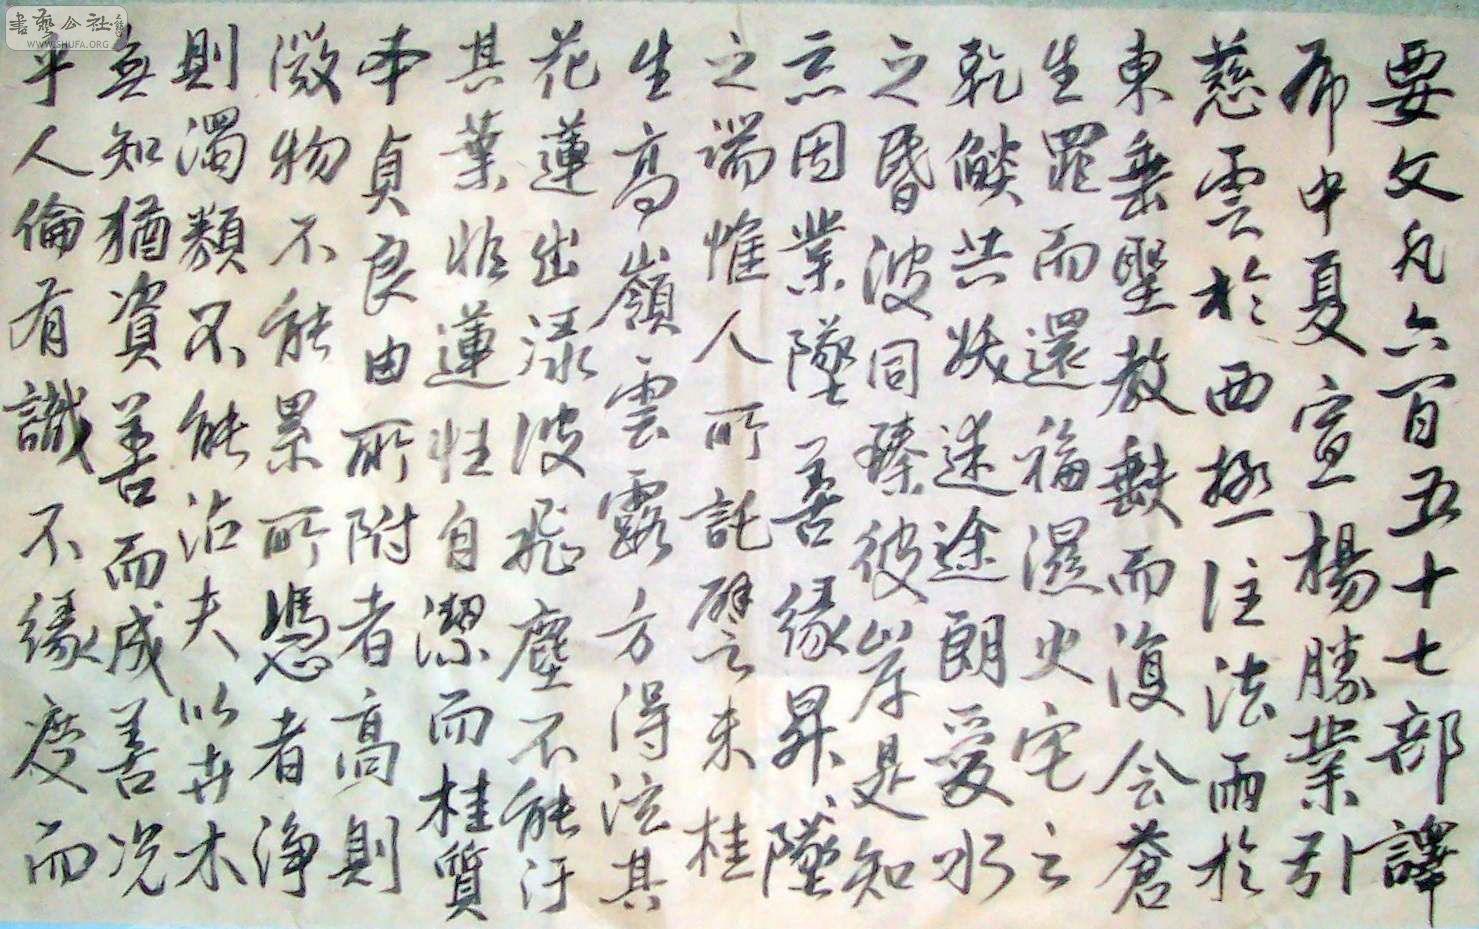 要文凡六百五十七部譯
布中夏宣楊勝業引
慈雲於西極注法雨於
東垂聖教缺而復全蒼
生罪而還福濕火宅之
乾燄共拔迷途朗愛水
之昏波同臻彼岸是知
惡因業墜善緣昇墜
之端惟人所託譬之夫桂
生高嶺雲露方得泫其
花蓮出淥波飛塵不能汙
其葉非蓮性自潔而桂質
本貞良由所附者高則
微物不能累所憑者淨
則濁類不能沾夫以卉木
無知猶資善而成善況
乎人倫有識不緣慶而
書藝公社
WWW.SHUFA.ORG